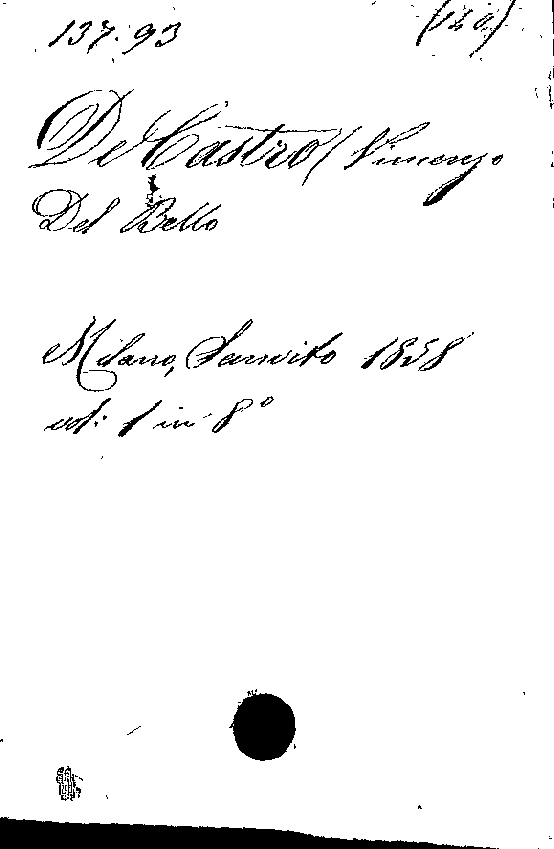 137.93
De Castro / Vincenzo
Del Bello
Milano, Sanvito 1858
vol: 1 in 8°